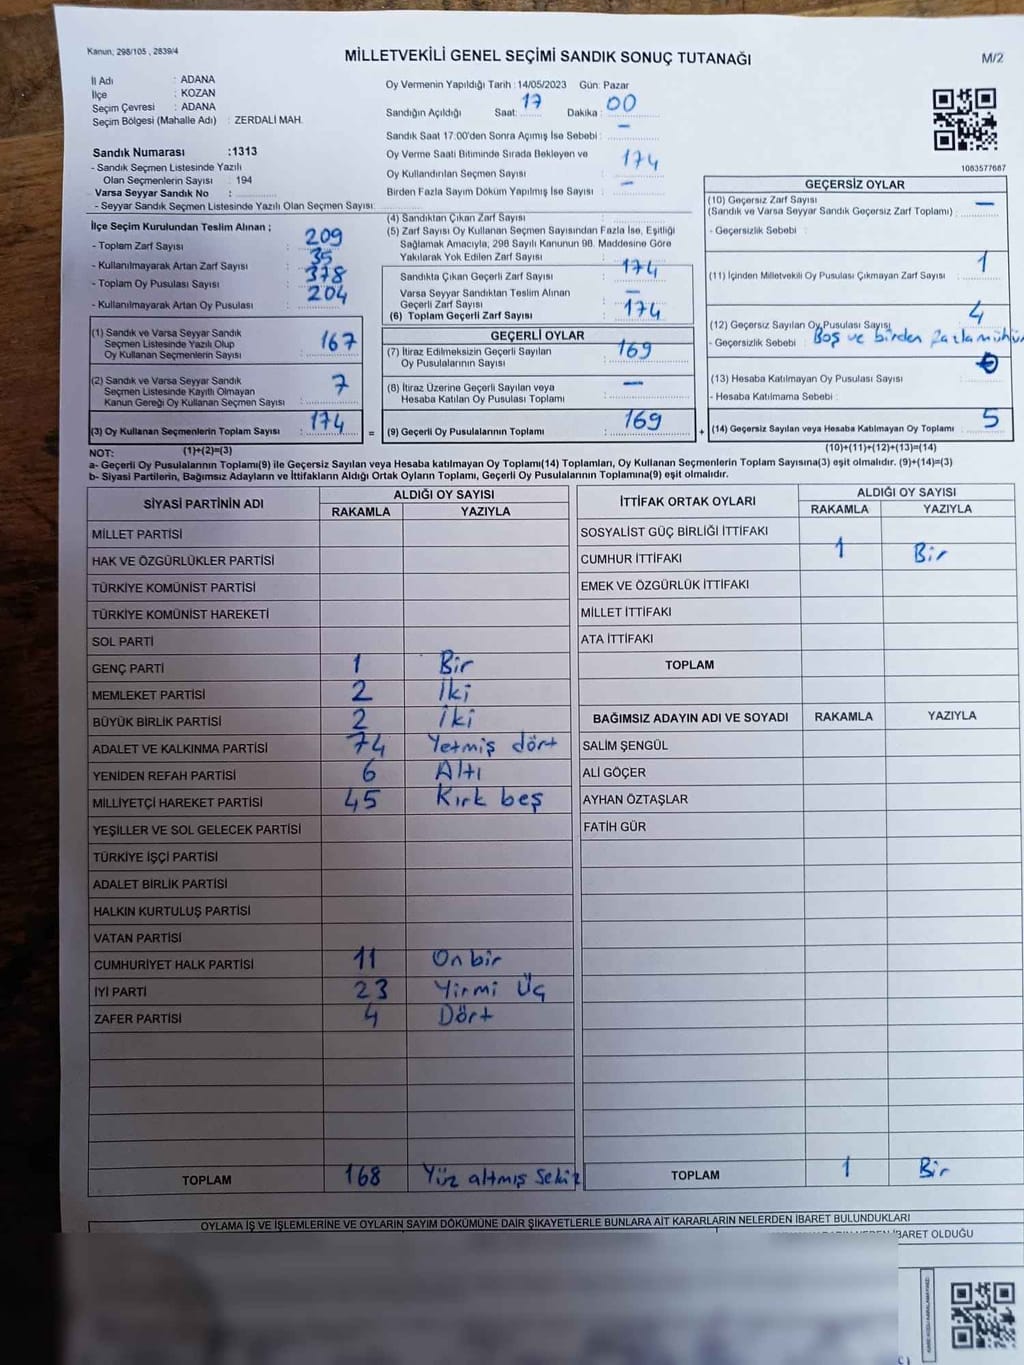 Kanun; 298/105 , 2839/4
MİLLETVEKİLİ GENEL SEÇİMİ SANDIK SONUÇ TUTANAĞI
M/2
İl Adı : ADANA
İlçe : KOZAN
Seçim Çevresi : ADANA
Seçim Bölgesi (Mahalle Adı) : ZERDALİ MAH.
Sandık Numarası :1313
- Sandık Seçmen Listesinde Yazılı
Olan Seçmenlerin Sayısı : 194
Varsa Seyyar Sandık No :
- Seyyar Sandık Seçmen Listesinde Yazılı Olan Seçmen Sayısı:
Oy Vermenin Yapıldığı Tarih : 14/05/2023 Gün: Pazar
Sandığın Açıldığı Saat: 17 Dakika : 00
Sandık Saat 17:00'den Sonra Açımış İse Sebebi : –
Oy Verme Saati Bitiminde Sırada Bekleyen ve
Oy Kullandırılan Seçmen Sayısı : 174
Birden Fazla Sayım Döküm Yapılmış İse Sayısı : –
1083577687
İlçe Seçim Kurulundan Teslim Alınan ;
- Toplam Zarf Sayısı : 209
- Kullanılmayarak Artan Zarf Sayısı : 35
- Toplam Oy Pusulası Sayısı : 378
- Kullanılmayarak Artan Oy Pusulası : 204
(1) Sandık ve Varsa Seyyar Sandık
Seçmen Listesinde Yazılı Olup
Oy Kullanan Seçmenlerin Sayısı : 167
(2) Sandık ve Varsa Seyyar Sandık
Seçmen Listesinde Kayıtlı Olmayan
Kanun Gereği Oy Kullanan Seçmen Sayısı : 7
(3) Oy Kullanan Seçmenlerin Toplam Sayısı : 174
(4) Sandıktan Çıkan Zarf Sayısı :
(5) Zarf Sayısı Oy Kullanan Seçmen Sayısından Fazla İse, Eşitliği
Sağlamak Amacıyla, 298 Sayılı Kanunun 98. Maddesine Göre
Yakılarak Yok Edilen Zarf Sayısı :
Sandıkta Çıkan Geçerli Zarf Sayısı : 174
Varsa Seyyar Sandıktan Teslim Alınan
Geçerli Zarf Sayısı : –
(6) Toplam Geçerli Zarf Sayısı : 174
GEÇERLİ OYLAR
(7) İtiraz Edilmeksizin Geçerli Sayılan
Oy Pusulalarının Sayısı : 169
(8) İtiraz Üzerine Geçerli Sayılan veya
Hesaba Katılan Oy Pusulası Toplamı : –
= (9) Geçerli Oy Pusulalarının Toplamı : 169
GEÇERSİZ OYLAR
(10) Geçersiz Zarf Sayısı
(Sandık ve Varsa Seyyar Sandık Geçersiz Zarf Toplamı) : –
- Geçersizlik Sebebi :
(11) İçinden Milletvekili Oy Pusulası Çıkmayan Zarf Sayısı : 1
(12) Geçersiz Sayılan Oy Pusulası Sayısı : 4
- Geçersizlik Sebebi : Boş ve birden fazla mühür
(13) Hesaba Katılmayan Oy Pusulası Sayısı : 0
- Hesaba Katılmama Sebebi :
+ (14) Geçersiz Sayılan veya Hesaba Katılmayan Oy Toplamı : 5
NOT: (1)+(2)=(3) (10)+(11)+(12)+(13)=(14)
a- Geçerli Oy Pusulalarının Toplamı(9) ile Geçersiz Sayılan veya Hesaba katılmayan Oy Toplamı(14) Toplamları, Oy Kullanan Seçmenlerin Toplam Sayısına(3) eşit olmalıdır. (9)+(14)=(3)
b- Siyasi Partilerin, Bağımsız Adayların ve İttifakların Aldığı Ortak Oyların Toplamı, Geçerli Oy Pusulalarının Toplamına(9) eşit olmalıdır.
SİYASİ PARTİNİN ADI ALDIĞI OY SAYISI
RAKAMLA YAZIYLA
MİLLET PARTİSİ
HAK VE ÖZGÜRLÜKLER PARTİSİ
TÜRKİYE KOMÜNİST PARTİSİ
TÜRKİYE KOMÜNİST HAREKETİ
SOL PARTİ
GENÇ PARTİ 1 Bir
MEMLEKET PARTİSİ 2 İki
BÜYÜK BİRLİK PARTİSİ 2 İki
ADALET VE KALKINMA PARTİSİ 74 Yetmiş dört
YENİDEN REFAH PARTİSİ 6 Altı
MİLLİYETÇİ HAREKET PARTİSİ 45 Kırk beş
YEŞİLLER VE SOL GELECEK PARTİSİ
TÜRKİYE İŞÇİ PARTİSİ
ADALET BİRLİK PARTİSİ
HALKIN KURTULUŞ PARTİSİ
VATAN PARTİSİ
CUMHURİYET HALK PARTİSİ 11 On bir
İYİ PARTİ 23 Yirmi Üç
ZAFER PARTİSİ 4 Dört
TOPLAM 168 Yüz altmış Sekiz
İTTİFAK ORTAK OYLARI ALDIĞI OY SAYISI
RAKAMLA YAZIYLA
SOSYALİST GÜÇ BİRLİĞİ İTTİFAKI
CUMHUR İTTİFAKI 1 Bir
EMEK VE ÖZGÜRLÜK İTTİFAKI
MİLLET İTTİFAKI
ATA İTTİFAKI
TOPLAM
BAĞIMSIZ ADAYIN ADI VE SOYADI RAKAMLA YAZIYLA
SALİM ŞENGÜL
ALİ GÖÇER
AYHAN ÖZTAŞLAR
FATİH GÜR
TOPLAM 1 Bir
OYLAMA İŞ VE İŞLEMLERİNE VE OYLARIN SAYIM DÖKÜMÜNE DAİR ŞİKAYETLERLE BUNLARA AİT KARARLARIN NELERDEN İBARET BULUNDUKLARI
İBARET OLDUĞU